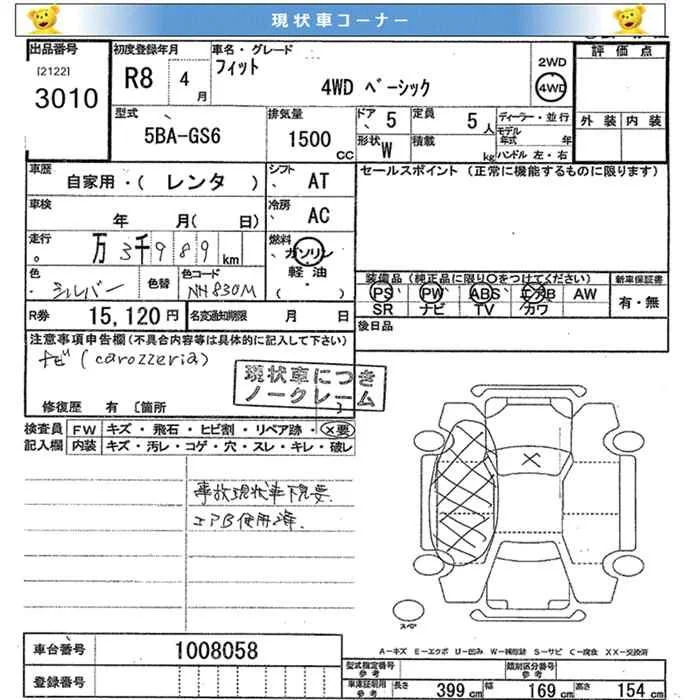 現状車コーナー
出品番号
[2122]
3010
初度登録年月
R8 4月
車名・グレード
フィット
4WD ベーシック
2WD
4WD
評価点
外装 内装
型式
5BA-GS6
排気量
1500 CC
ドア 5
定員 5人
形状 W
積載 kg
ディーラー・並行
モデル年式 年
ハンドル 左・右
車歴
自家用・( レンタ )
シフト AT
セールスポイント (正常に機能するものに限ります)
車検
年 月( 日)
冷房 AC
走行
万3千989 km
燃料
ガソリン
軽油
( )
色
シルバー
色替
色コード
NH830M
装備品 (純正品に限り○をつけてください)
PS PW ABS エアB AW
SR ナビ TV カワ
新車保証書
有・無
R券 15,120円
名変通知期限 月 日
後日品
注意事項申告欄(不具合内容等は具体的に記入して下さい)
ナビ(carozzeria)
現状車につき
ノークレーム
修復歴 有 〔箇所 〕
検査員
記入欄
FW キズ・飛石・ヒビ割・リペア跡・×要
内装 キズ・汚レ・コゲ・穴・スレ・キレ・破レ
事故現状車下見要
エアB使用済.
×
スペア
A−キズ E−エクボ U−凹み W−補修跡 S−サビ C−腐食 XX−交換済
車台番号 1008058
登録番号
型式指定番号
参考
類別区分番号
参考
車検証期用
参考
長さ 399 cm
幅 169 cm
高さ 154 cm